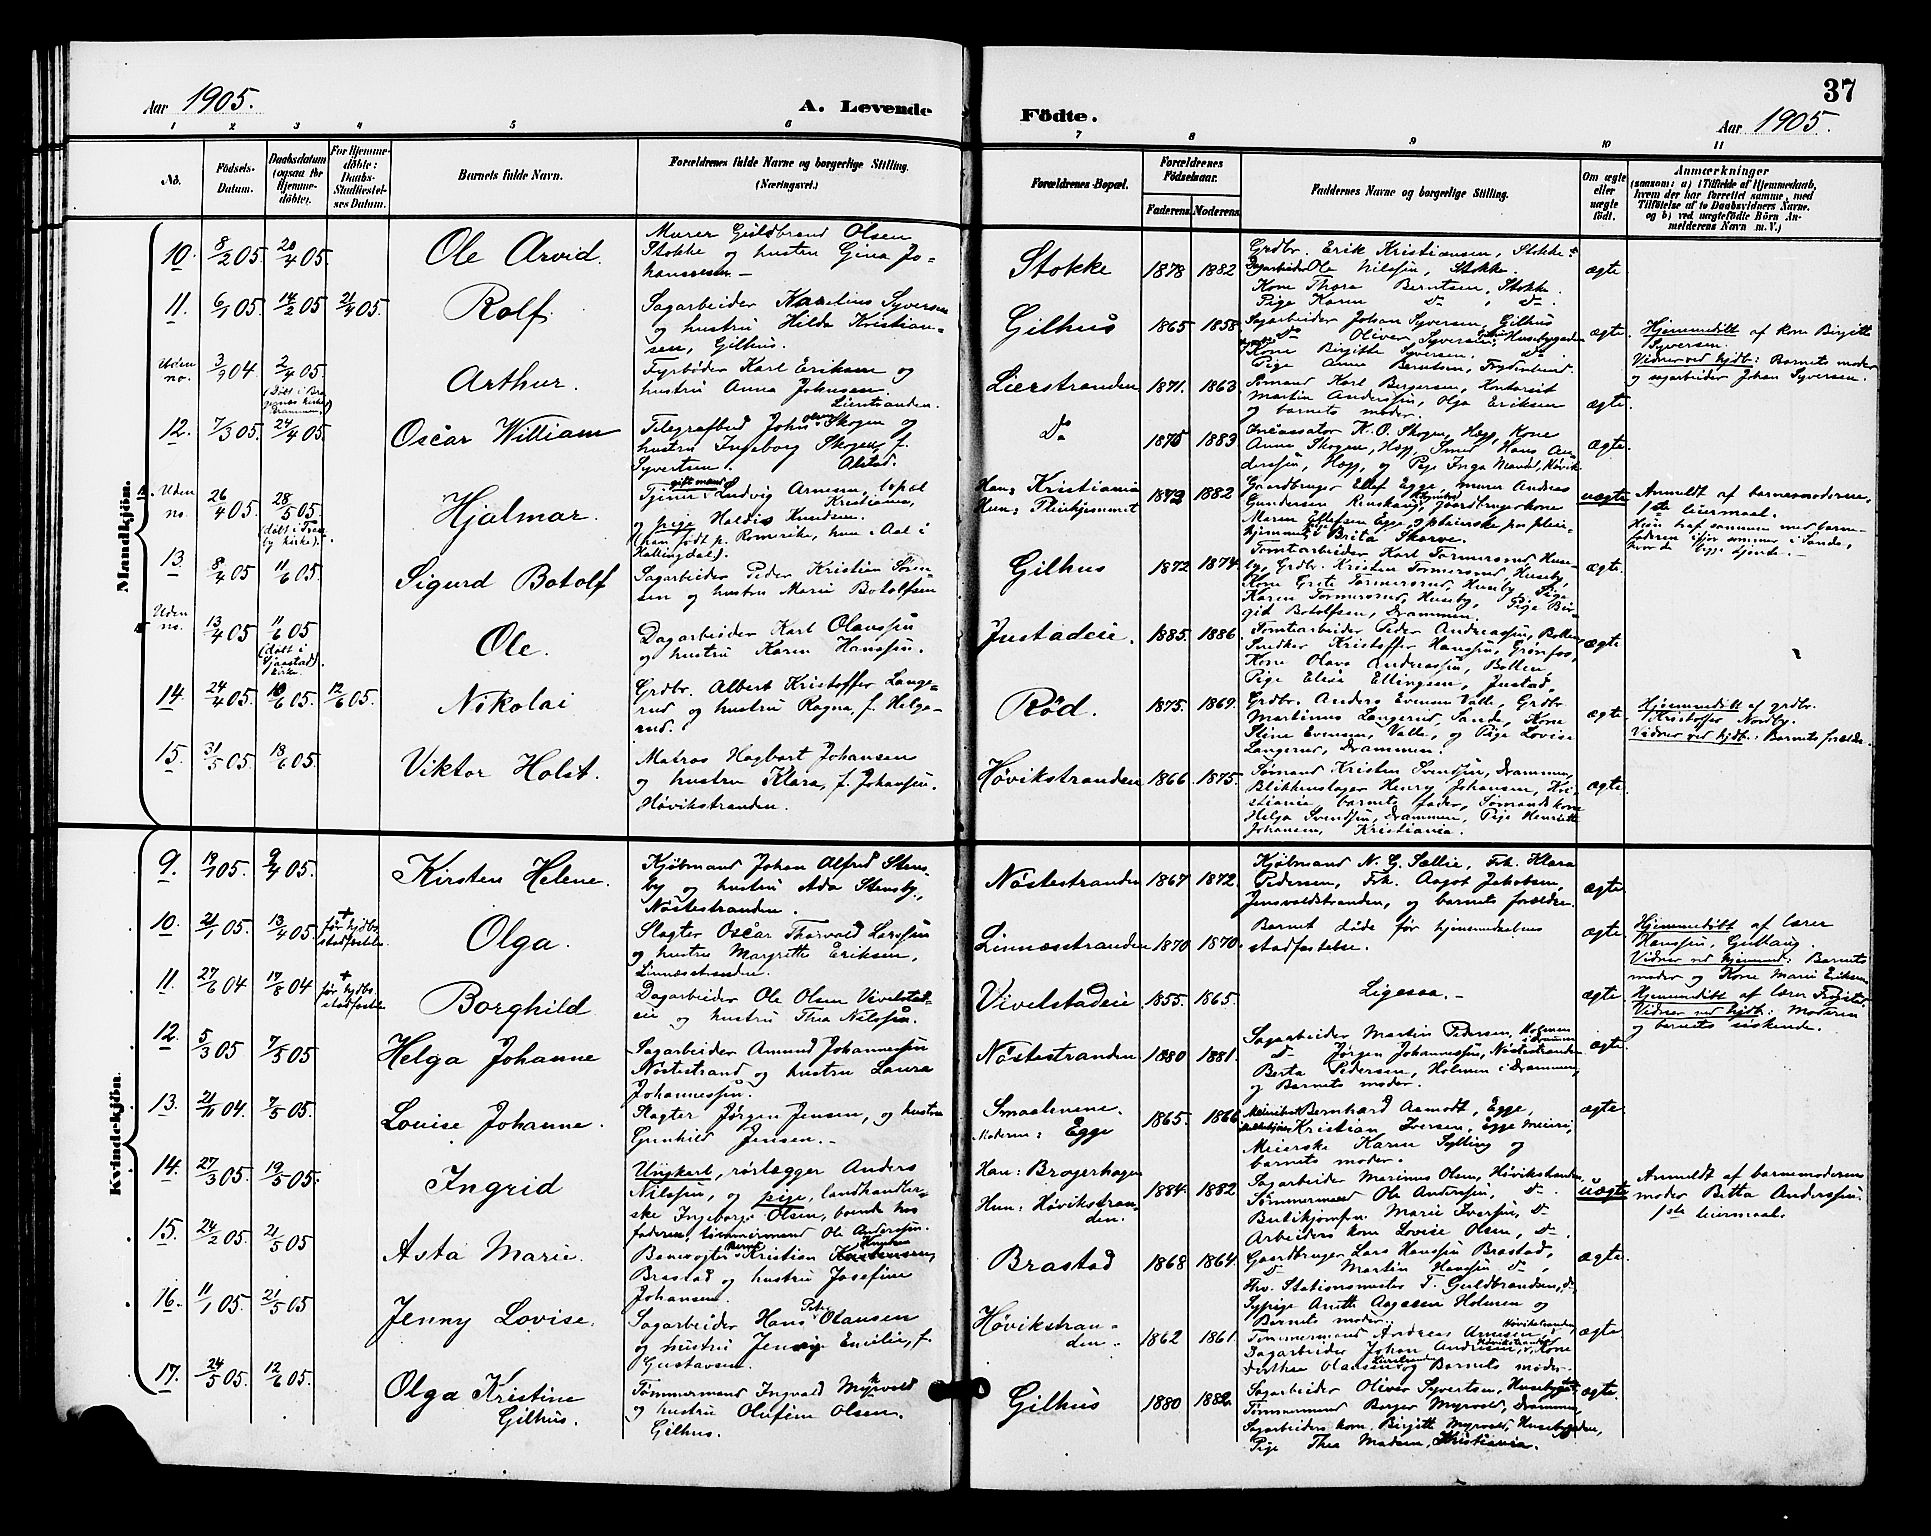 37
Aar 1905.
A. Levende Födte.
Aar 1905.
1 2 3 4 5 6 7 8 9 10 11
No.
Födsels-Datum.
Daabsdatum (ogsaa for Hjemme-döbte).
For Hjemme-döbte: Daabs-Stadfæstel-ses Datum.
Barnets fulde Navn.
Forældrenes fulde Navne og borgerlige Stilling. (Næringsvei.)
Forældrenes Bopæl.
Forældrenes Födselsaar.
Faderens. Moderens.
Faddernes Navne og borgerlige Stilling.
Om ægte eller uægte födt.
Anmærkninger (saasom: a) i Tilfælde af Hjemmedaab, hvem der har forrettet samme, med Tilföielse af to Daabsvidners Navne. og b) ved uægtefödte Börn An-melderens Navn m. V.)
Mandkjön.
10. 8/2 05. 20/4 05. Ole Arvid.
Murer Guldbrand Olsen
Stokke og hustru Gina Jo-
hannessen. —
Stokke 1878 1882
Grdbr. Erik Kristiansen, Stokke
Sagarbeider Ole Nilssen, Stokke.
Kone Thora Berntsen, Stokke.
Pige Karen do do.
ægte
11. 6/1 05. 14/2 05 21/4 05. Rolf.
Sagarbeider Karelius Syversen
og hustru Hilda Kristian-
sen, Gilhus.
Gilhus 1865 1858
Sagarbeider Johan Syversen, Gilhus
do Oliver Syversen, Husebygaden
Kone Birgitte Syversen. do
Pige Anna Berntsen,
ægte.
Hjemmedöbt af kone Birgitte
Syversen.
Vidner ved hjdb: Barnets moder
og sagarbeider Johan Syversen.
Uden no. 3/9 04. 2/4 05. (Döbt i Bra-
gernæs kirke
Drammen.)
Arthur.
Fyrböder Karl Eriksen og
hustru Anna Johnsen.
Lierstranden.
Lierstranden 1871. 1863.
Sömand Karl Bergersen, Kontorist
Martin Anderssen, Olga Eriksen
og barnets moder.
ægte.
12. 7/3 05. 24/4 05. Oscar William
Telegrafbud John Olsen Skogen og
hustru Ingeborg Skogen, f.
Syvertsen. Alstad.
do 1875 1883
Incassator K. O. Skogen, Høpp, Kone
Anna Skogen, Høpp, Smed Hans An-
derssen, Høpp, og Pige Inga
ægte.
Uden no. 26/4 05. 28/5 05. (döbt i Tran-
by kirke).
Hjalmar.
gift mand
Tjener Ludvig Arnesen, bopæl
Kristiania,
og pige Haldis Knudsen.
(han födt p. Romerike, hun i Aal i
Hallingdal).
Han: Kristiania
Hun: Pleiehjemmet
1873 1882
Gaardbruger Ellef Egge, murer Andreas
Gundersen
Maren Ellefsen Egge, og pleierske paa pleie-
hjemmet Brita Skarve.
uægte
Anmeldt af barnemoderen,
1ste leiermaal.
Hun traf sammen med barne-
faderen ifjor sommer i Sande,
hvor de begge tjente. —
13. 8/4 05 11/6 05. Sigurd Botolf
Sagarbeider Peder Kristian Sören-
sen og hustru Marie Botolfsen
Gilhus 1872 1874.
Tomtarbeider Karl Tormersrud, Huse-
by, Grdbr. Kristian Tormersrud, Huseby,
Kone Grete Tormersrud, Huseby, Pige
Karen Tormersrud, Huseby, Pige Bir-
git Botolfsen, Drammen.
ægte.
Uden no. 13/4 05 11/6 05 (döbt i
Sjaastad
kirke.
Ole.
Dagarbeider Karl Olavssen
og hustru Karen Hanssen.
Justadeie. 1885. 1886.
Tomtarbeider Peder Andreassen, Botten,
Snedker Kristoffer Hanssen, Grönfos,
Kone Olava Andreassen, Botten.
Pige Elise Ellingsen, Justad.
ægte
14. 24/4 05. 10/6 05. 12/6 05. Nikolai
Grdbr. Albert Kristoffer Lange-
rud og hustru Ragna, f. Helge-
rud.
Röd. 1875. 1869.
Grdbr. Anders Evensen Valle, Grdbr.
Martinus Langerud, Sande, Kone
Stine Evensen, Valle, og Pige Lovise
Langerud, Drammen.
ægte.
Hjemmedöbt af grdbr.
Kristoffer Nordby.
Vidner ved hjdb.: Barnets forældre.
15. 31/5 05. 18/6 05. Viktor Holst.
Matros Hagbart Johansen
og hustru Klara, f. Johanssen.
Høvikstranden.
Høvikstranden 1866 1875.
Sömand Kristen Svendsen, Drammen,
Blikkenslager Henry Johansen, Kri-
stiania, barnets fader, Sömands kone
Helga Svendsen, Drammen, Pige Henriette
Johansen, Kristiania.
ægte.
Kvindekjön.
9. 19/1 05. 9/4 05. Kirsten Helene.
Kjöbmand Johan Alfred Stens-
by og hustru Ada Stensby,
Nöstestranden.
Nöstestranden 1867 1872.
Kjöbmand N. G. Sællie, Frk. Klara
Pedersen, Frk. Aagot Jakobsen,
Jensvoldstranden, og barnets forældre.
ægte.
10. 21/1 05. 13/4 05. + för hjdbs
stadfæstelse
Olga.
Slagter Oscar Thorvald Larssen
og hustru Margrethe Eriksen,
Linnæsstranden.
Linnæsstranden 1870 1870.
Barnet döde för hjemmedaabens
stadfæstelse.
ægte.
Hjemmedöbt af lærer
Hanssen, Gullaug.
Vidner ved hjemmed: Barnets
moder og Kone Marie Eriksen
11. 27/6 04 17/8 04 + för hjdbs
stadfæstelse
Borghild
Dagarbeider Ole Olsen Vivelstad-
eie og hustru Thea Nilssen.
Vivelstadeie 1855. 1865.
Ligesaa. —
ægte.
Hjemmedöbt af lærer
Vidner ved hjdb: Moderen
og barnets söskende.
12. 5/3 05. 7/5 05. Helga Johanne
Sagarbeider Amund Johannessen
Nöstestrand og hustru Laura
Johannessen.
Nöstestranden 1880 1881.
Sagarbeider Martin Pedersen, Holmen i Drammen
do Jörgen Johannessen, Nöstestranden
Berta Pedersen, Holmen i Drammen,
og Barnets moder.
ægte.
13. 21/11 04. 7/5 05. Lovise Johanne.
Slagter Jörgen Jensen, og hustru
Gunhild Jensen. —
Smaalenene.
Moderen: Egge
1865. 1866
Bernhard Aamodt, Egge,
Kristian Iversen, Egge meieri,
Meierske Karen Sylling og
barnets moder.
ægte.
14. 27/3 05. 19/5 05. Ingrid
Ungkarl, rörlægger Anders
Nilssen, og pige, landhandler-
ske Ingeborg Olsen, boende hos
faderen, tömmermand Ole Anderssen.
Han: Bragerhagen
Hun: Høvikstran-
den.
1884. 1882
Sagarbeider Marinus Olsen, Høvikstranden,
Tömmermand Ole Anderssen, do.
Butikjomfru Marie Iverssen, do
Arbeiders kone Lovise Olsen, do
uægte
Anmeldt af barnemoderens
moder Betta Anderssen.
1ste leiermaal.
15. 24/2 05. 21/5 05 Asta Marie.
Banevogter Bernt Kristian
Brastad og hustru Josefine
Johansen.
Brastad 1868 1864.
Gaardbruger Lars Hanssen Brastad,
do Martin Hanssen do,
Fhv. Stationsmester T. Guldbrandsen, do
Sypige Anette Aagesen Holmen og
Barnets moder.
ægte.
16. 11/1 05. 21/5 05 Jenny Lovise.
Sagarbeider Hans Petter Olaussen
og hustru Jenny Emilie, f.
Gustavsen.
Høvikstran-
den. 1862 1861.
Tömmermand Andreas Arnesen, Høvikstranden,
Dagarbeider Johan Andresen, Høvikstranden, Kone
Dorthea Olaussen Lierstranden og Barnets moder.
ægte
17. 24/5 05. 12/6 05. Olga Kristine
Gilhus.
Tømmermand Ingvald Myrvold
og hustru Olufine Olsen.
Gilhus.
Gilhus 1880 1882.
Sagarbeider Oliver Syvertsen, Husebygaden,
Tømmermand Berger Myrvold, Drammen,
Sagarbeiders kone Birgitte Myrvold, Husebygaden,
Pige Thea Madsen, Kristiania.
ægte.